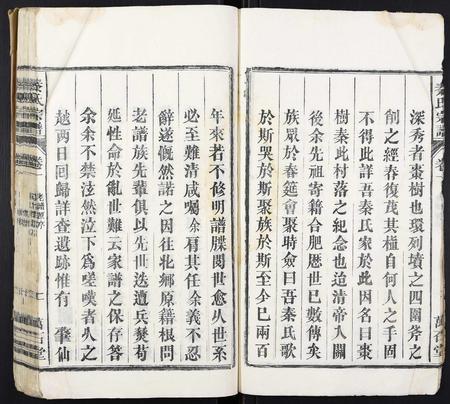 深秀者棗樹也環列墳之四圍斧之
創之經春復茂其植自何人之手固
不得此詳吾秦氏家於此因名曰棗
樹秦此村落之紀念也迨清帝入關
後余先祖寄籍合肥歷世已數傳矣
族眾於春筵會聚時僉曰吾秦氏歌
於斯哭於斯聚族於斯至今已兩百
年來若不修明譜牒閱世愈久世系
必至難清咸囑余肩其任余義不忍
辭遂慨然諾之因往牝鄉原籍根問
老譜族先輩俱以先世迭遭兵燹苟
延性命於亂世難云家譜之保存答
余余不禁泫然泣下為嗟嘆者久之
越兩日回歸詳查遺跡惟有 肇仙
秦氏宗譜
卷
萬石堂